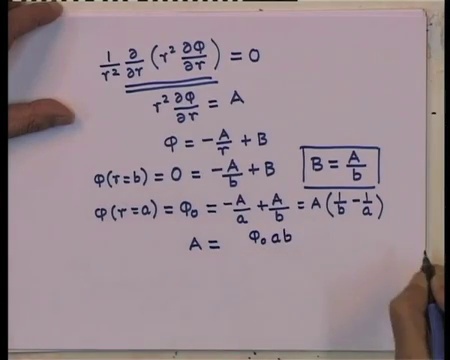 1/r² ∂/∂r (r² ∂φ/∂r) = 0
r² ∂φ/∂r = A
φ = -A/r + B
φ(r=b) = 0 = -A/b + B   B = A/b
φ(r=a) = φ₀ = -A/a + A/b = A(1/b - 1/a)
A = φ₀ab